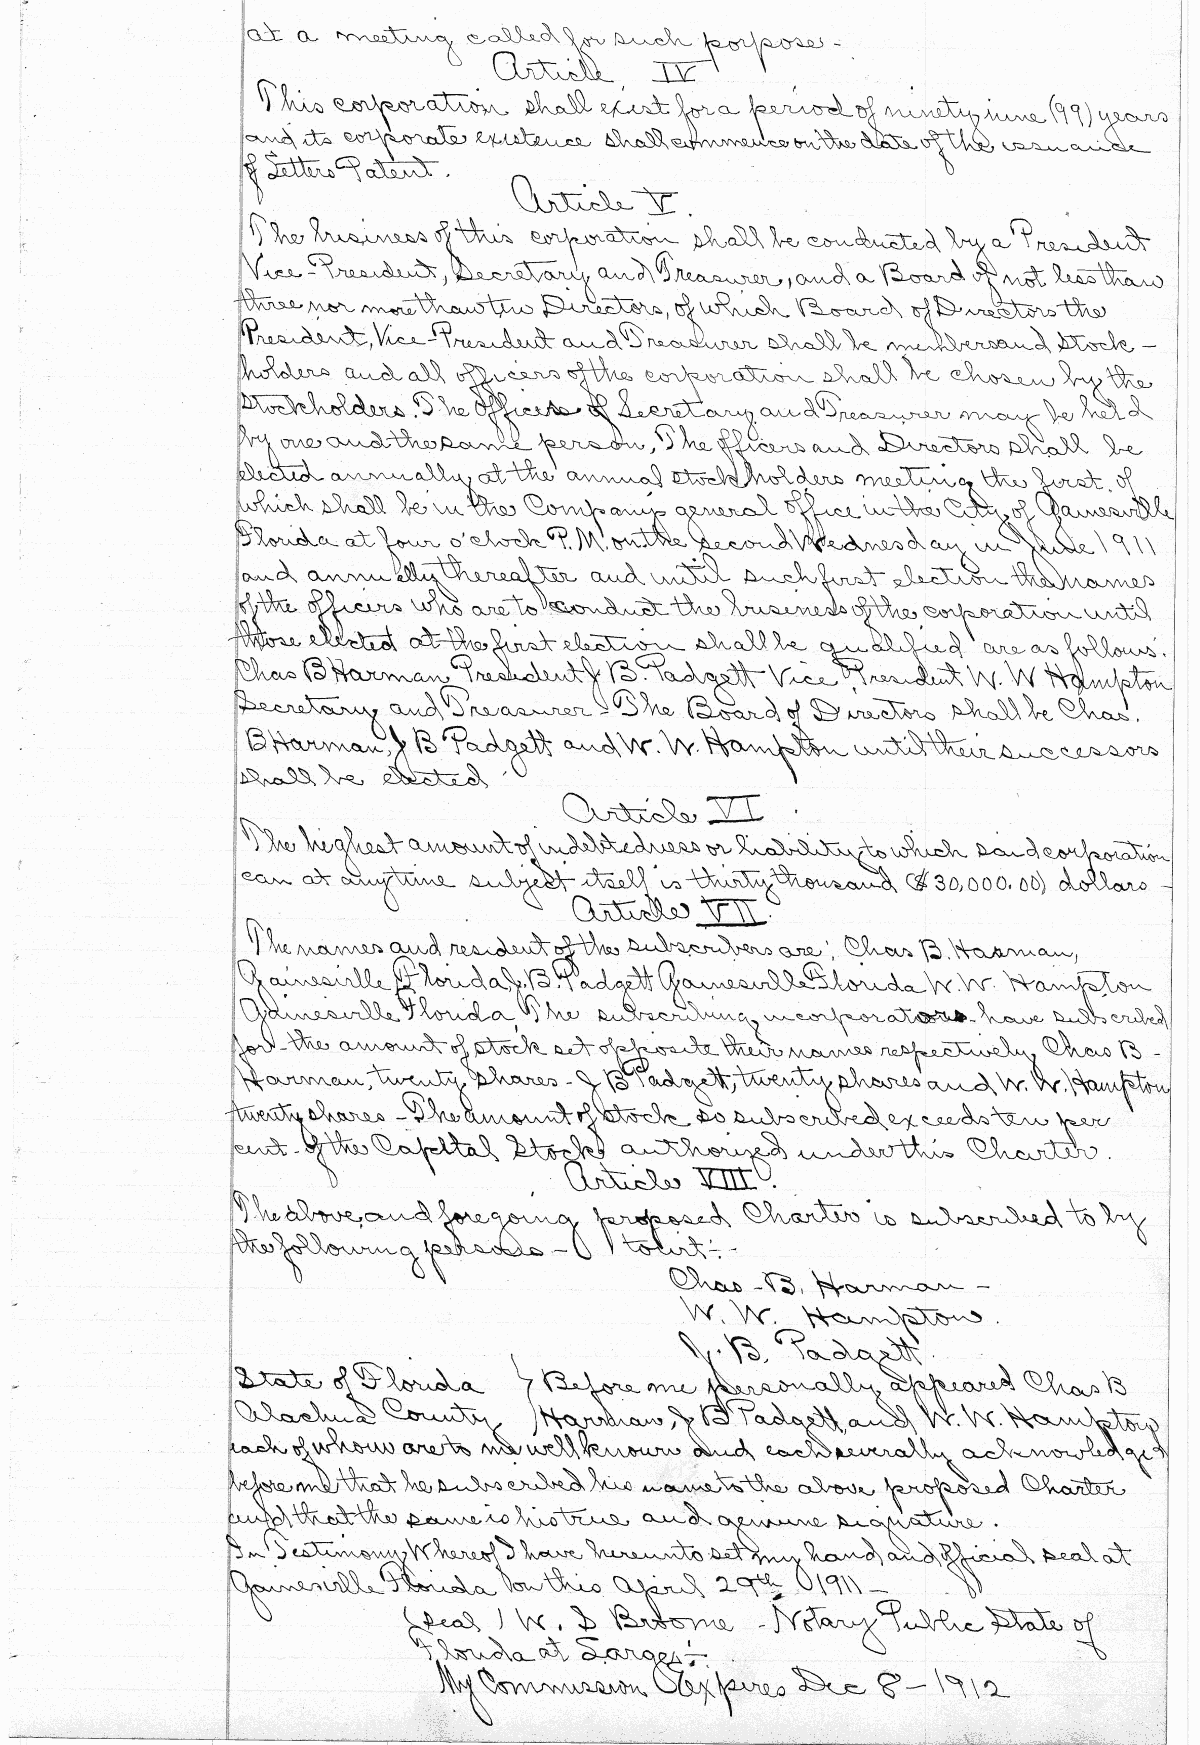 at a meeting called for such porpose -
Article IV
This corporation shall exist for a period of ninety nine (99) years
and its corporate existence shall commence on the date of the issuance
of Letters Patent.
Article V.
The business of this corporation shall be conducted by a President
Vice-President, Secretary and Treasurer, and a Board of not less than
three nor more than ten Directors, of which Board of Directors the
President, Vice-President and Treasurer shall be members and Stock -
holders and all officers of the corporation shall be chosen by the
Stockholders. The Offices of Secretary and Treasurer may be held
by one and the same person, The officers and Directors shall be
elected annually at the annual stockholders meeting the first. of
which shall be in the Company's general office in the City of Gainesville
Florida at four o'clock P.M. on the second Wednesday in June 1911
and annually thereafter and until such first election the names
of the officers who are to conduct the business of the corporation until
those elected at the first election shall be qualified are as follows:
Chas B Harman President J B. Padgett Vice President W. W Hampton
Secretary and Treasurer - The Board of Directors shall be Chas.
B Harman, J B Padgett and W. W. Hampton until their successors
shall be elected
Article VI
The highest amount of indebtedness or liability to which said corporation
can at anytime subject itself is thirty thousand ($30,000.00) dollars -
Article VII.
The names and resident of the subscribers are; Chas B. Harman,
Gainesville Florida J. B. Padgett Gainesville Florida W. W. Hampton
Gainesville Florida, The subscribing incorporators have subscribed
for the amount of stock set opposite their names respectively Chas B -
Harman, twenty shares - J B Padgett, twenty shares and W. W. Hampton
twenty shares - The amount of stock so subscribed exceeds ten per
cent - of the Capital Stock authorized under this Charter.
Article VIII.
The above and foregoing proposed Charter is subscribed to by
the following persons - towit:-
Chas - B. Harman -
W. W. Hampton.
J. B. Padgett.
State of Florida } Before me personally appeared Chas B
Alachua County } Harman, J B Padgett and W. W. Hampton
each of whom are to me well known and each severally acknowledged
before me that he subscribed his name to the above proposed Charter
and that the same is his true and genuine signature.
In Testimony Whereof I have hereunto set my hand and official seal at
Gainesville Florida on this April 29th 1911 -
(seal) W. S Broome - Notary Public State of
Florida at Large:-
My Commission Expires Dec 8 - 1912